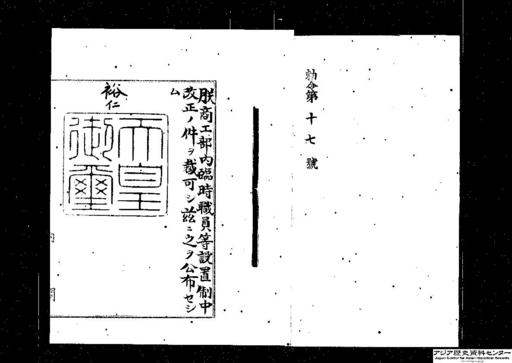 勅令第十七號
朕商工部內臨時職員等設置制中
改正ノ件ヲ裁可シ茲ニ之ヲ公布セシ
ム
裕仁
天皇
御璽
アジア歴史資料センター
Japan Center for Asian Historical Records